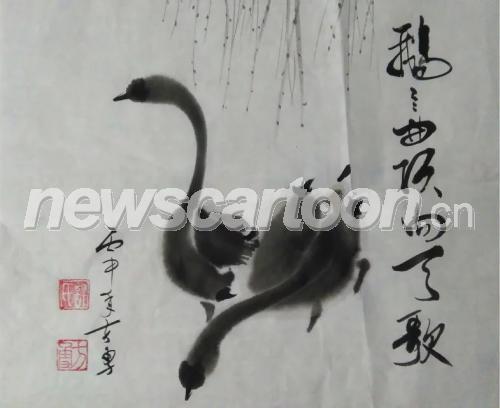 鹅々曲项向天歌
newscartoon.cn
丙申年